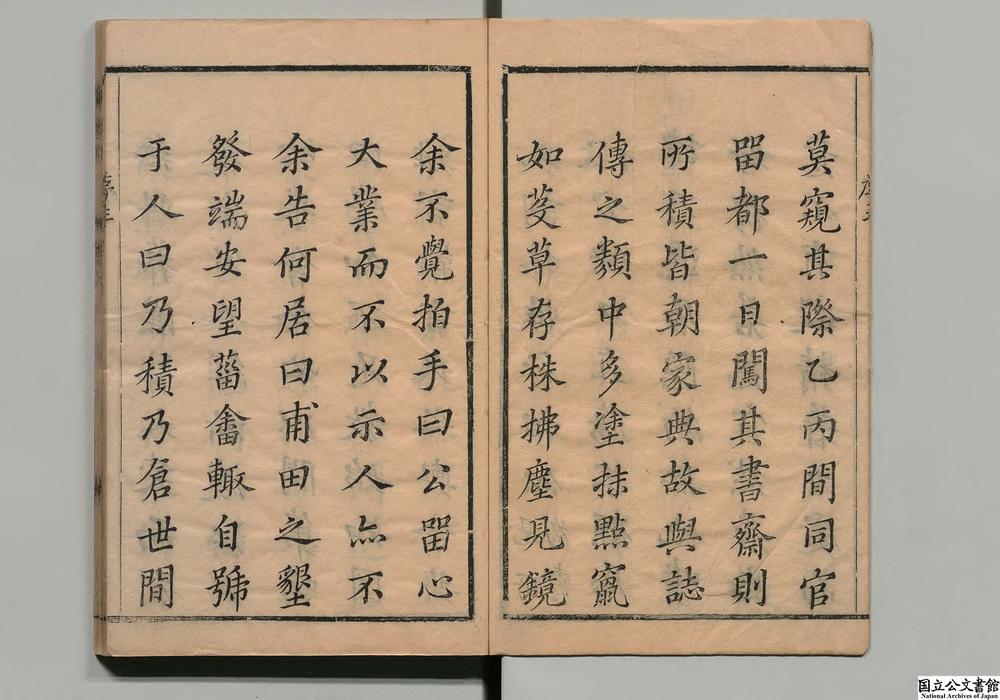 莫窺其際乙丙間同官
畱都一日闖其書齋則
所積皆朝家典故與誌
傳之類中多塗抹點竄
如芟草存株拂塵見鏡
余不覺拍手曰公畱心
大業而不以示人亦不
余告何居曰甫田之墾
發端安望菑畬輙自號
于人曰乃積乃倉世間
国立公文書館
National Archives of Japan